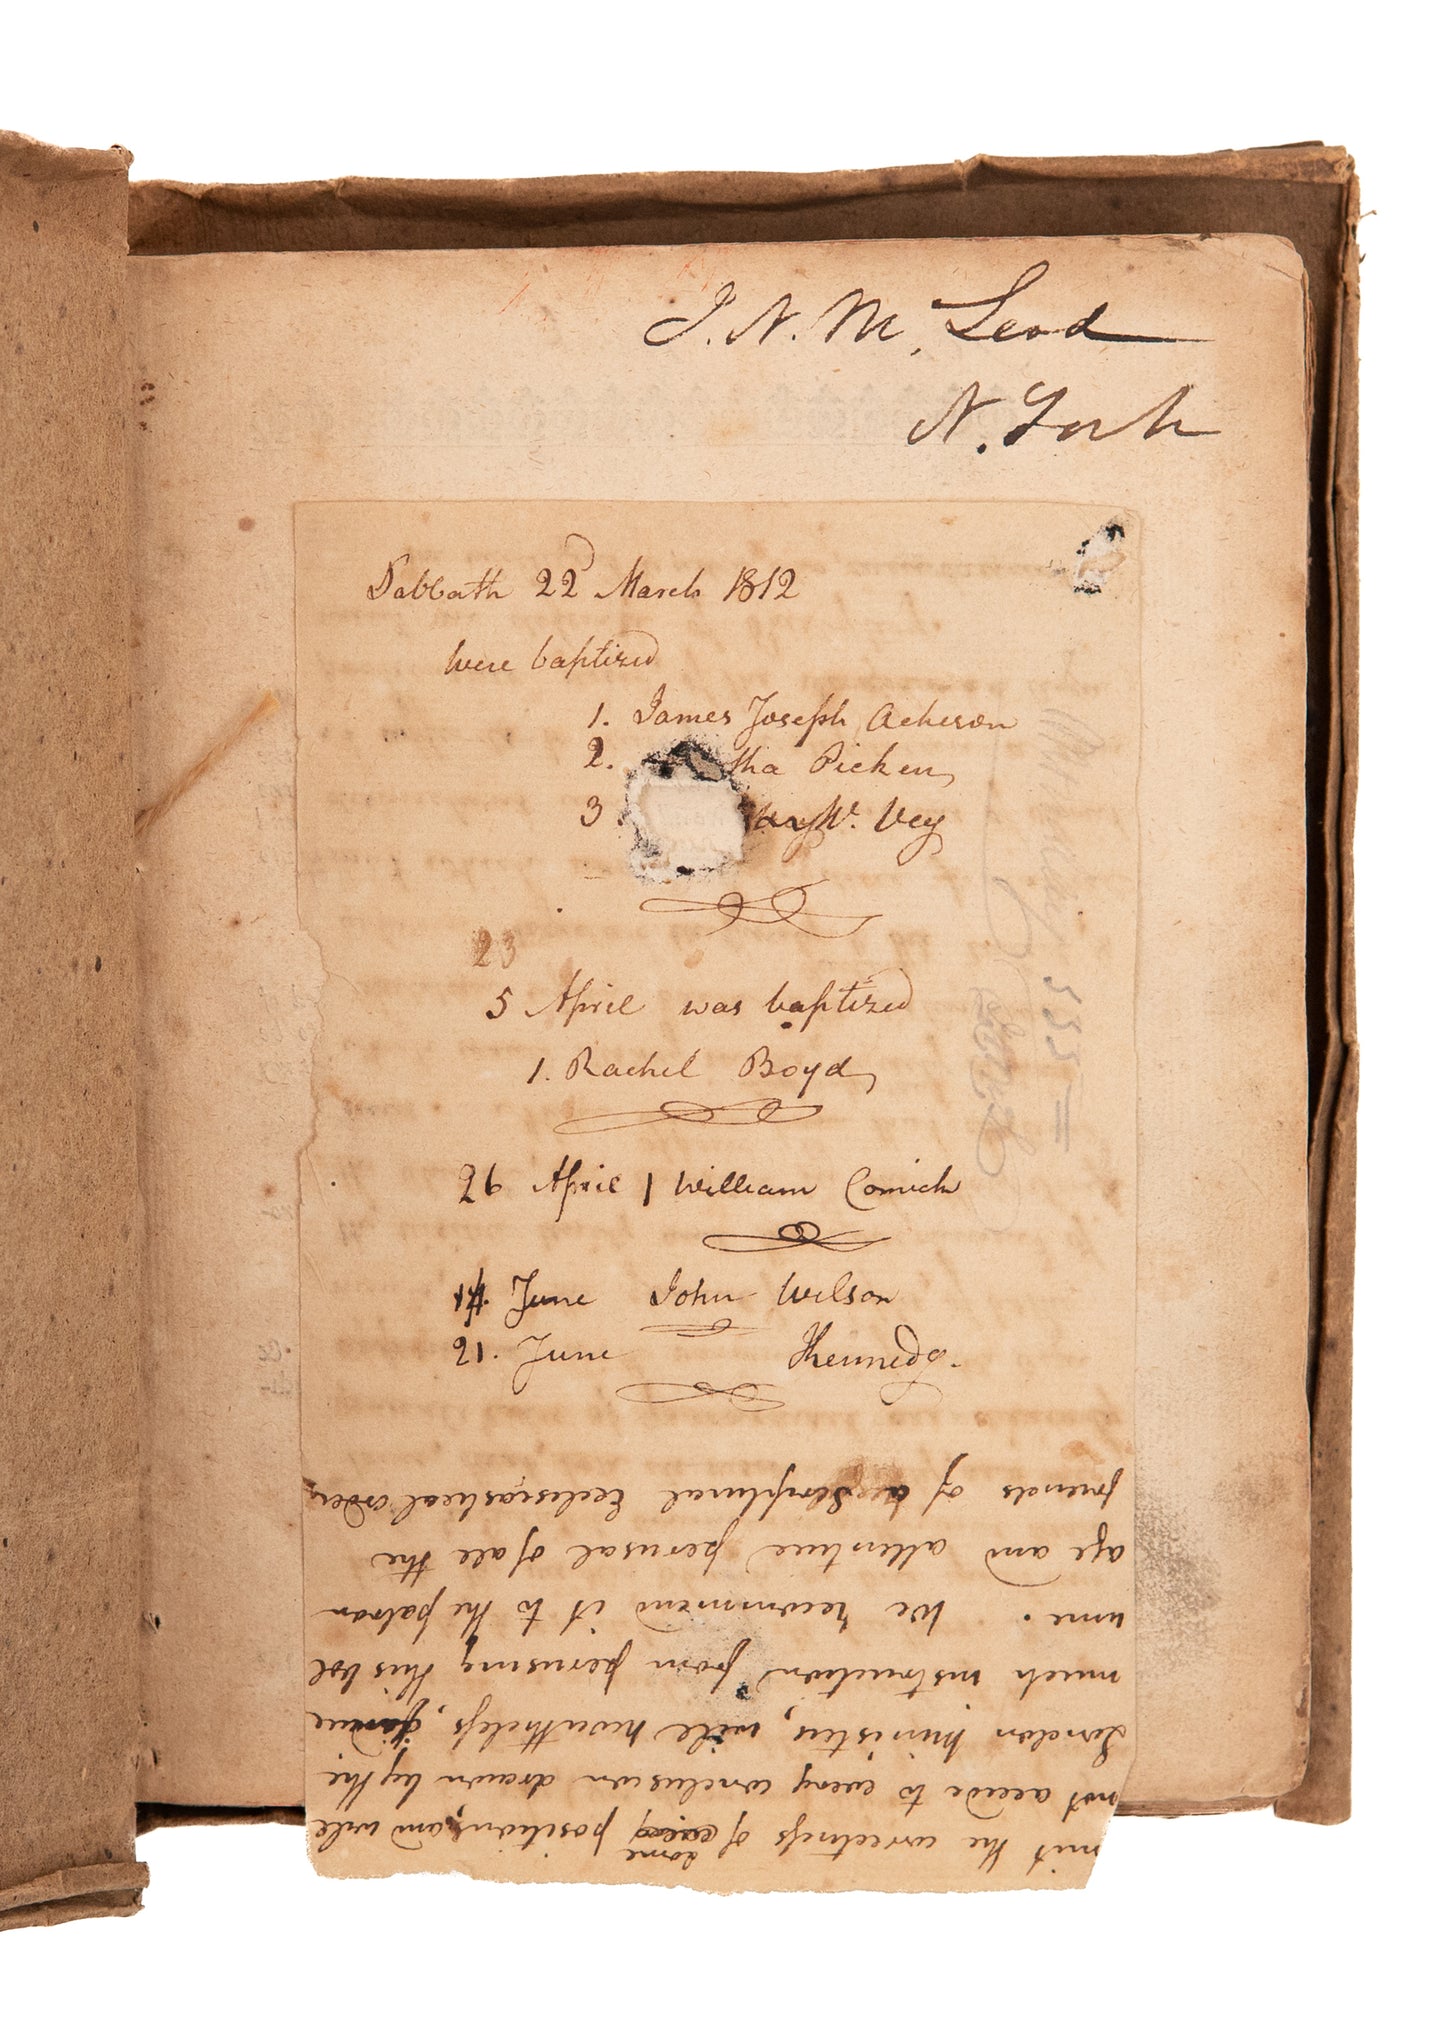 J. N. Mc Leod
N. York
Sabbath 22d March 1812
were baptized
1. James Joseph Acheson
2. tha Picken
3. W. Vey
23
5 April was baptized
1. Rachel Boyd
26 April 1 William Comich
14. June John Wilson
21. June Kennedy.
mit the correctness of some positions, and will
not accede to every conclusion drawn by the
London Minister, will nevertheless, derive
much instruction from perusing this vol
ume. We recommend it to the patron
age and attentive perusal of all the
friends of Scriptural Ecclesiastical order